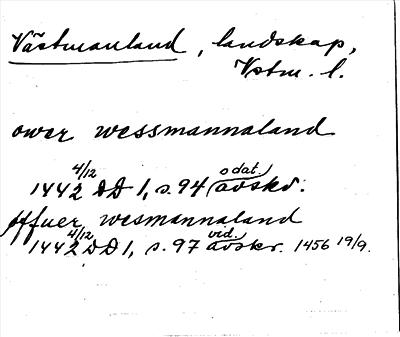 Västmanland, landskap,
Vstm. l.
ower wessmannaland
1442 4/12 DD 1, s. 94 odat. avskr.
öffuer wesmannaland
1442 4/12 DD 1, s. 97 vid. avskr. 1456 19/9.